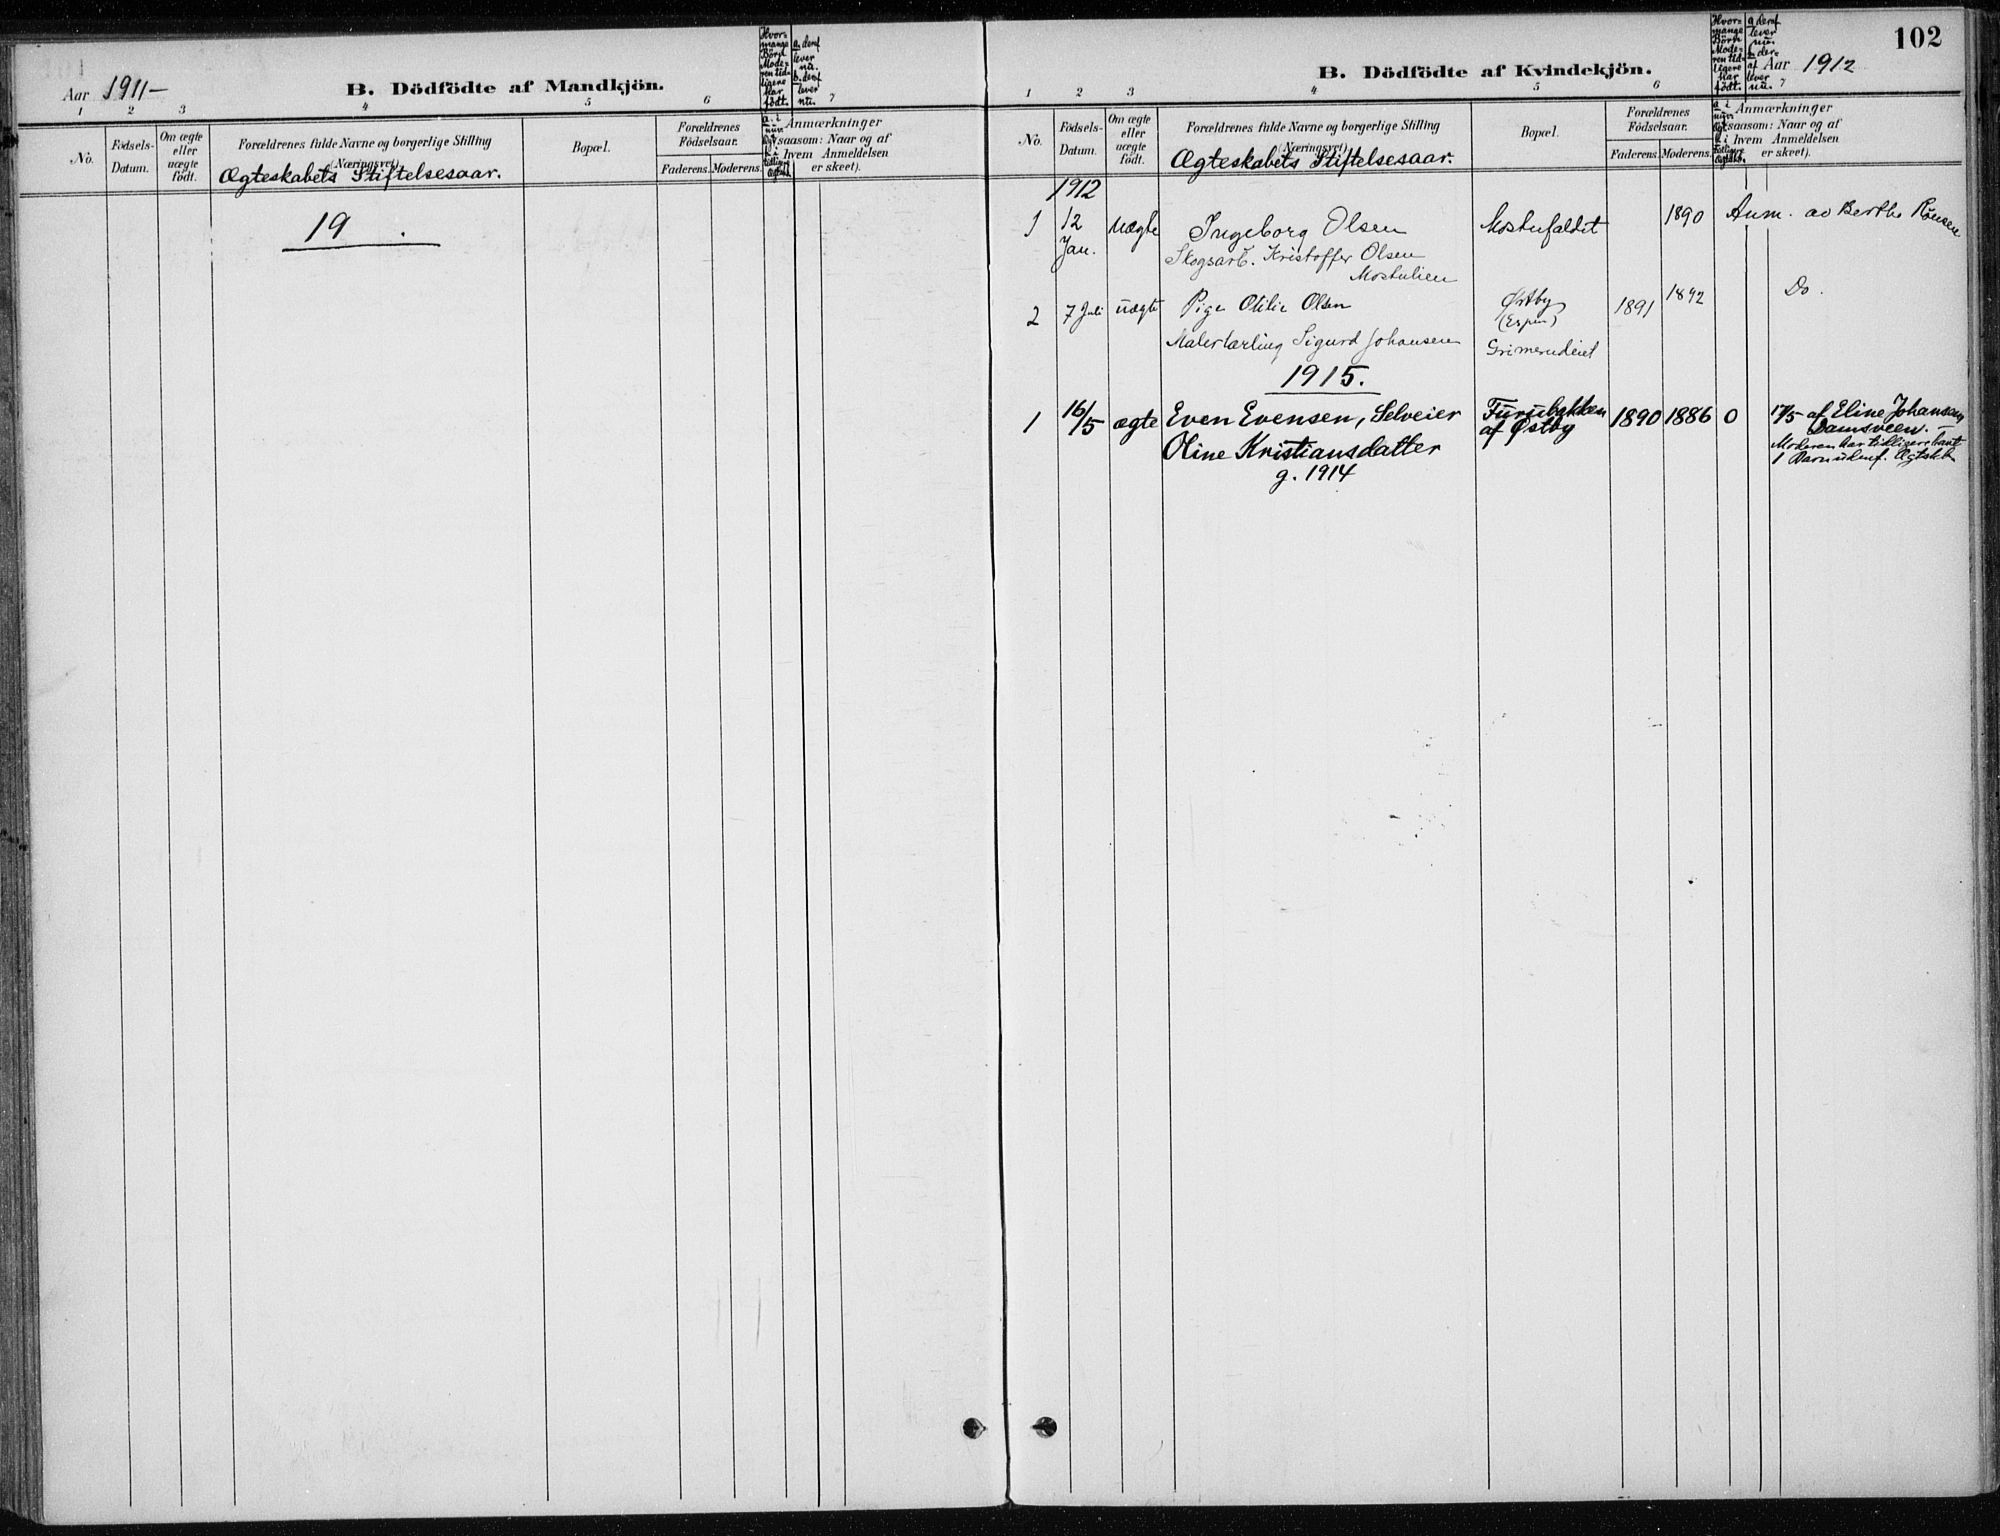 Aar 1911-
B. Dödfödte af Mandkjön.
Hvormange Börn Moderen tidligere har födt.
a. deraf lever nu. b. deraf lever nu.
1 2 3 4 5 6 7
No.
Födsels-Datum.
Om ægte eller uægte födt.
Forældrenes fulde Navne og borgerlige Stilling
(Næringsvei)
Ægteskabets Stiftelsesaar.
Bopæl.
Forældrenes Födselsaar.
Faderens. Moderens.
Anmærkninger
saasom: Naar og af
hvem Anmeldelsen
er skeet).
19 .
102
B. Dödfödte af Kvindekjön.
Hvormange Börn Moderen tidligere har födt.
a deraf lever nu. b. deraf lever nu.
Aar 1912
1 2 3 4 5 6 7
No.
Födsels-Datum.
Om ægte eller uægte födt.
Forældrenes fulde Navne og borgerlige Stilling
(Næringsvei)
Ægteskabets Stiftelsesaar.
Bopæl.
Forældrenes Födselsaar.
Faderens. Moderens.
Anmærkninger
saasom: Naar og af
hvem Anmeldelsen
er skeet).
1912
1 12 Jan. uægte Ingeborg Olsen 1890 Anm. av Berthe
Skogsarb. Kristoffer Olsen
Mostulien
2 7 Juli uægte Pige Otilie Olsen Østby 1891 1892 Do.
Malerlærling Sigurd Johansen
1915.
1 16/5 ægte Even Evensen, Selveier Furubakken 1890 1886 0 17/5 af Eline Johansen
af Østby
Oline Kristiansdatter
g. 1914
Moderen har tidligere havt
1 Barn udenf. Ægtsk.